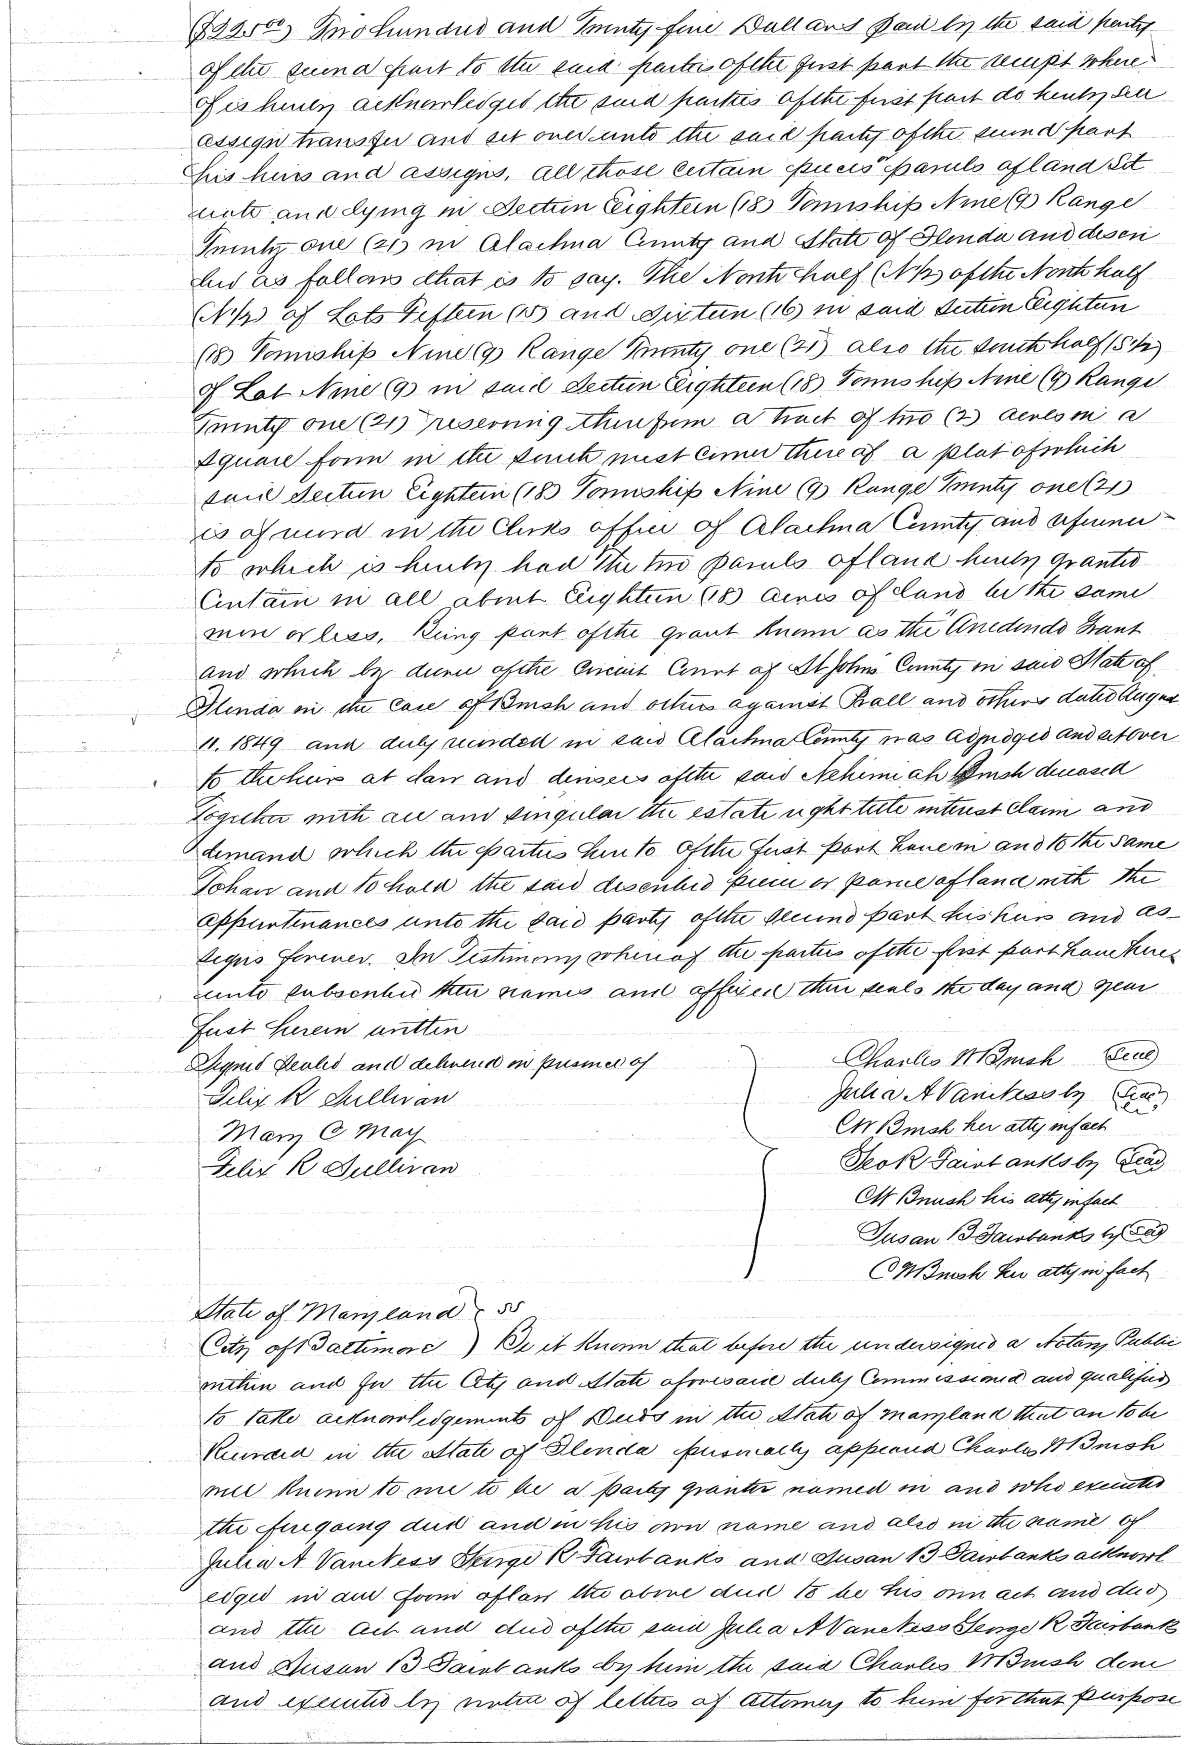 ($225.00) Two hundred and Twenty five Dollars paid by the said party
of the second part to the said parties of the first part the receipt where
of is hereby acknowledged the said parties of the first part do hereby sell
assign transfer and set over unto the said party of the second part
his heirs and assigns, all those certain pieces parcels of land Sit
uate and lying in Section Eighteen (18) Township Nine (9) Range
Twenty one (21) in Alachua County and State of Florida and descri
bed as follows that is to say. The North half (N½) of the North half
(N½) of Lots Fifteen (15) and Sixteen (16) in said Section Eighteen
(18) Township Nine (9) Range Twenty one (21) also the South half (S½)
of Lot Nine (9) in said Section Eighteen (18) Township Nine (9) Range
Twenty one (21) reserving therefrom a tract of two (2) acres in a
square form in the South west Corner thereof a plat of which
said Section Eighteen (18) Township Nine (9) Range Twenty one (21)
is of record in the Clerks office of Alachua County and reference
to which is hereby had The two parcels of land hereby granted
Contain in all about Eighteen (18) acres of land be the same
more or less, being part of the grant known as the Arredondo Grant
and which by decree of the Circuit Court of St Johns County in said State of
Florida in the case of Brush and others against Ball and others dated August
11. 1849 and duly recorded in said Alachua County was adjudged and set over
to the heirs at law and devisees of the said Nehimiah Brush deceased
Together with all and singular the estate right title interest claim and
demand which the parties hereto of the first part have in and to the same
To have and to hold the said described piece or parcel of land with the
appurtenances unto the said party of the second part his heirs and as-
signs forever. In Testimony whereof the parties of the first part have here
unto subscribed their names and affixed their seals the day and year
first herein written
Signed Sealed and delivered in presence of
Felix R Sullivan
Mary C May
Felix R Sullivan
Charles W Brush (Seal)
Julia A Van Ness by (Seal)
C W Brush her atty in fact
Geo R Fairbanks by (Seal)
C W Brush his atty in fact
Susan B Fairbanks by (Seal)
C W Brush her atty in fact
State of Maryland ) ss
City of Baltimore ) Be it known that before the undersigned a Notary Public
within and for the City and State aforesaid duly Commissioned and qualified
to take acknowledgements of Deeds in the State of Maryland that are to be
Recorded in the State of Florida personally appeared Charles W Brush
well known to me to be a party grantor named in and who executed
the foregoing deed and in his own name and also in the name of
Julia A. Van Ness George R Fairbanks and Susan B Fairbanks acknowl
edged in due form of law the above deed to be his own act and deed
and the act and deed of the said Julia A Van Ness George R Fairbanks
and Susan B Fairbanks by him the said Charles W Brush done
and executed by virtue of letters of Attorney to him for that purpose